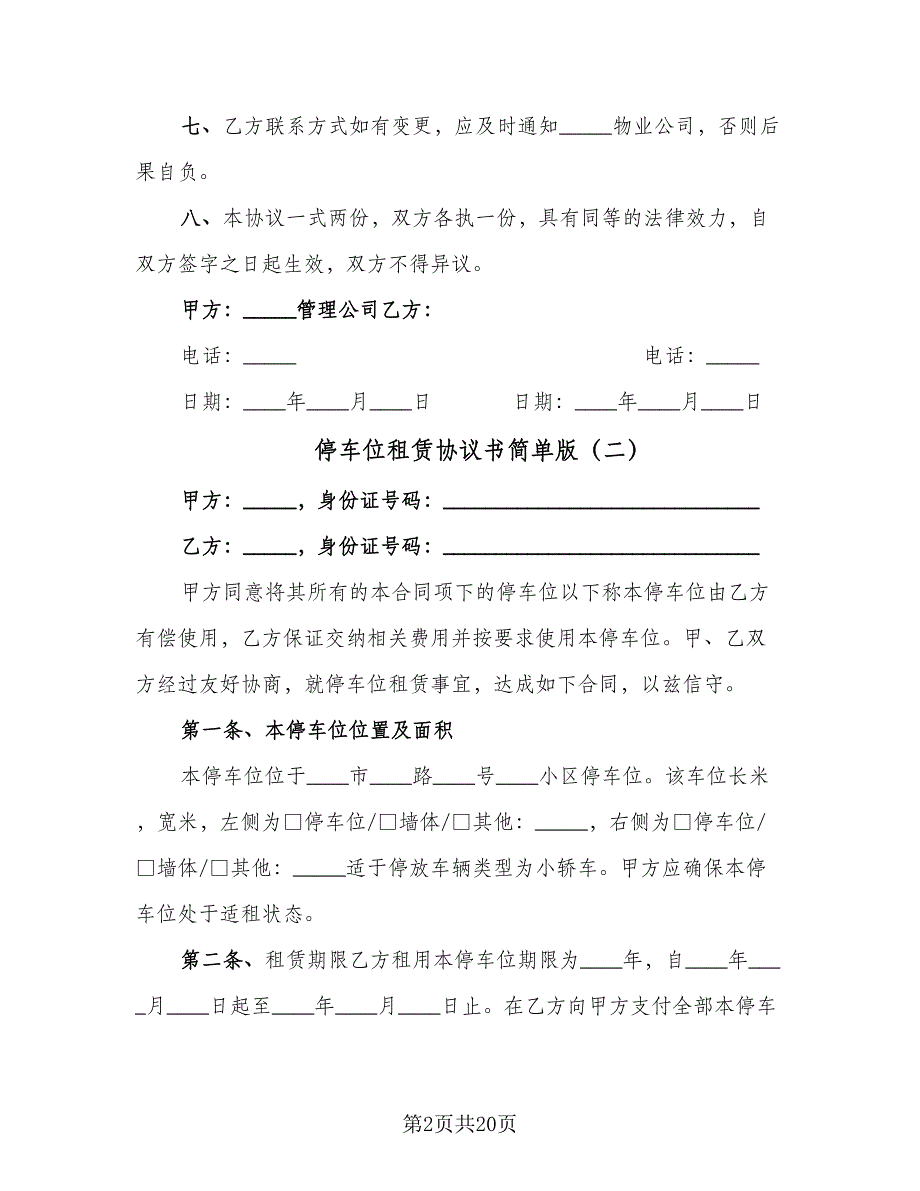 七、乙方联系方式如有变更，应及时通知_____物业公司，否则后
果自负。
八、本协议一式两份，双方各执一份，具有同等的法律效力，自
双方签字之日起生效，双方不得异议。
甲方：_____管理公司乙方：
电话：_____ 电话：_____
日期：____年____月____日 日期：____年____月____日
停车位租赁协议书简单版（二）
甲方：_____，身份证号码：______________________________
乙方：_____，身份证号码：______________________________
甲方同意将其所有的本合同项下的停车位以下称本停车位由乙方
有偿使用，乙方保证交纳相关费用并按要求使用本停车位。甲、乙双
方经过友好协商，就停车位租赁事宜，达成如下合同，以兹信守。
第一条、本停车位位置及面积
本停车位位于____市____路____号____小区停车位。该车位长米
，宽米，左侧为□停车位/□墙体/□其他：_____，右侧为□停车位/
□墙体/□其他：_____适于停放车辆类型为小轿车。甲方应确保本停
车位处于适租状态。
第二条、租赁期限乙方租用本停车位期限为____年，自____年___
_月____日起至____年____月____日止。在乙方向甲方支付全部本停车
第2页共20页